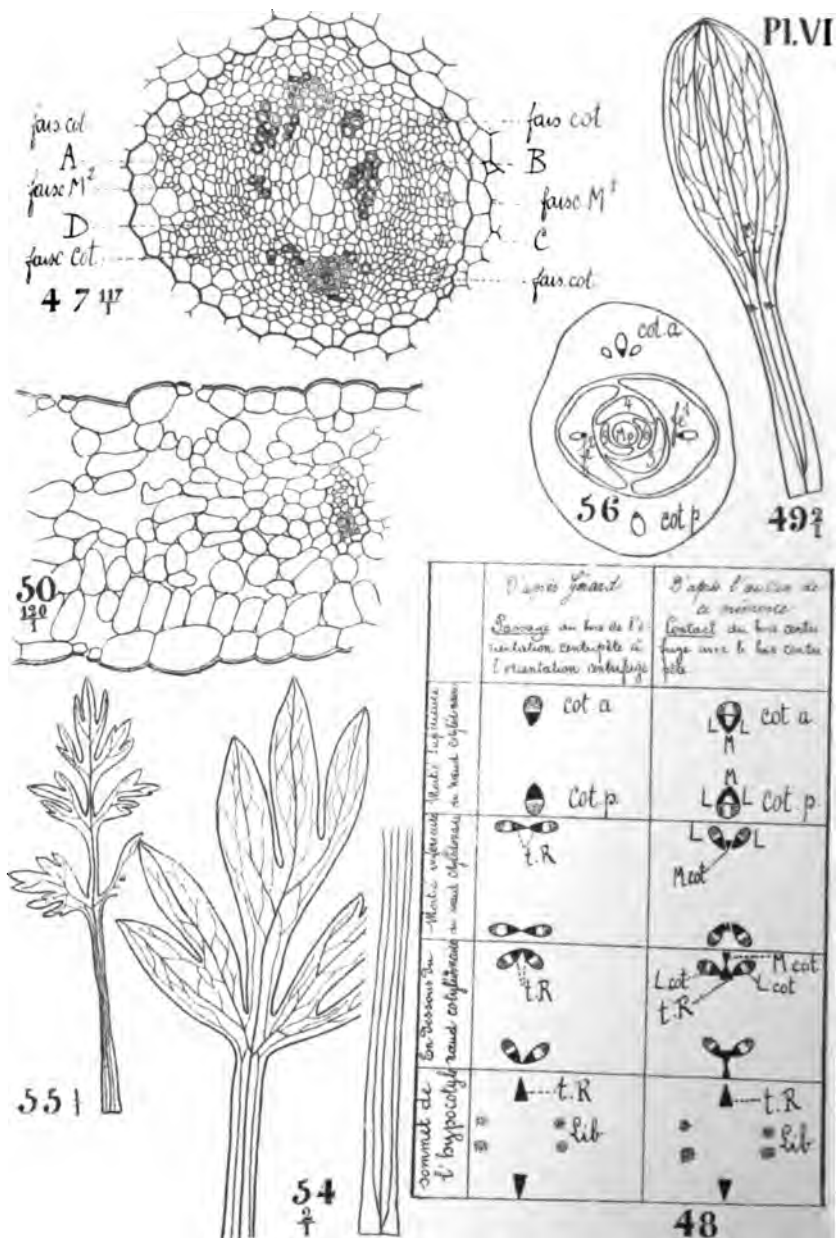 Pl.VI
fais cot
A
faisc M²
D
faisc cot.
47 117/1
fais cot
B
faisc M¹
C
fais.cot.
cot.a
4
Mo
3
56
cot p.
49 2/1
50
120/1
D'après Gérard
Passage du bois de l'o-
rientation centripète à
l'orientation centrifuge
D'après l'auteur de
ce mémoire
Contact du bois centri
fuge avec le bois centri
pète.
Moitié supérieure
du nœud cotylédonaire
cot a
Cot.p.
L L
M
cot a
M
L L
Cot.p.
Moitié inférieure
du nœud cotylédonaire
t.R
L L
M cot
En Dessous du
nœud cotylédonaire
t.R
M cot
L cot
L cot
t.R
sommet de
l'hypocotyle
t.R
Lib
t.R
Lib
55 1/1
54
2/1
48